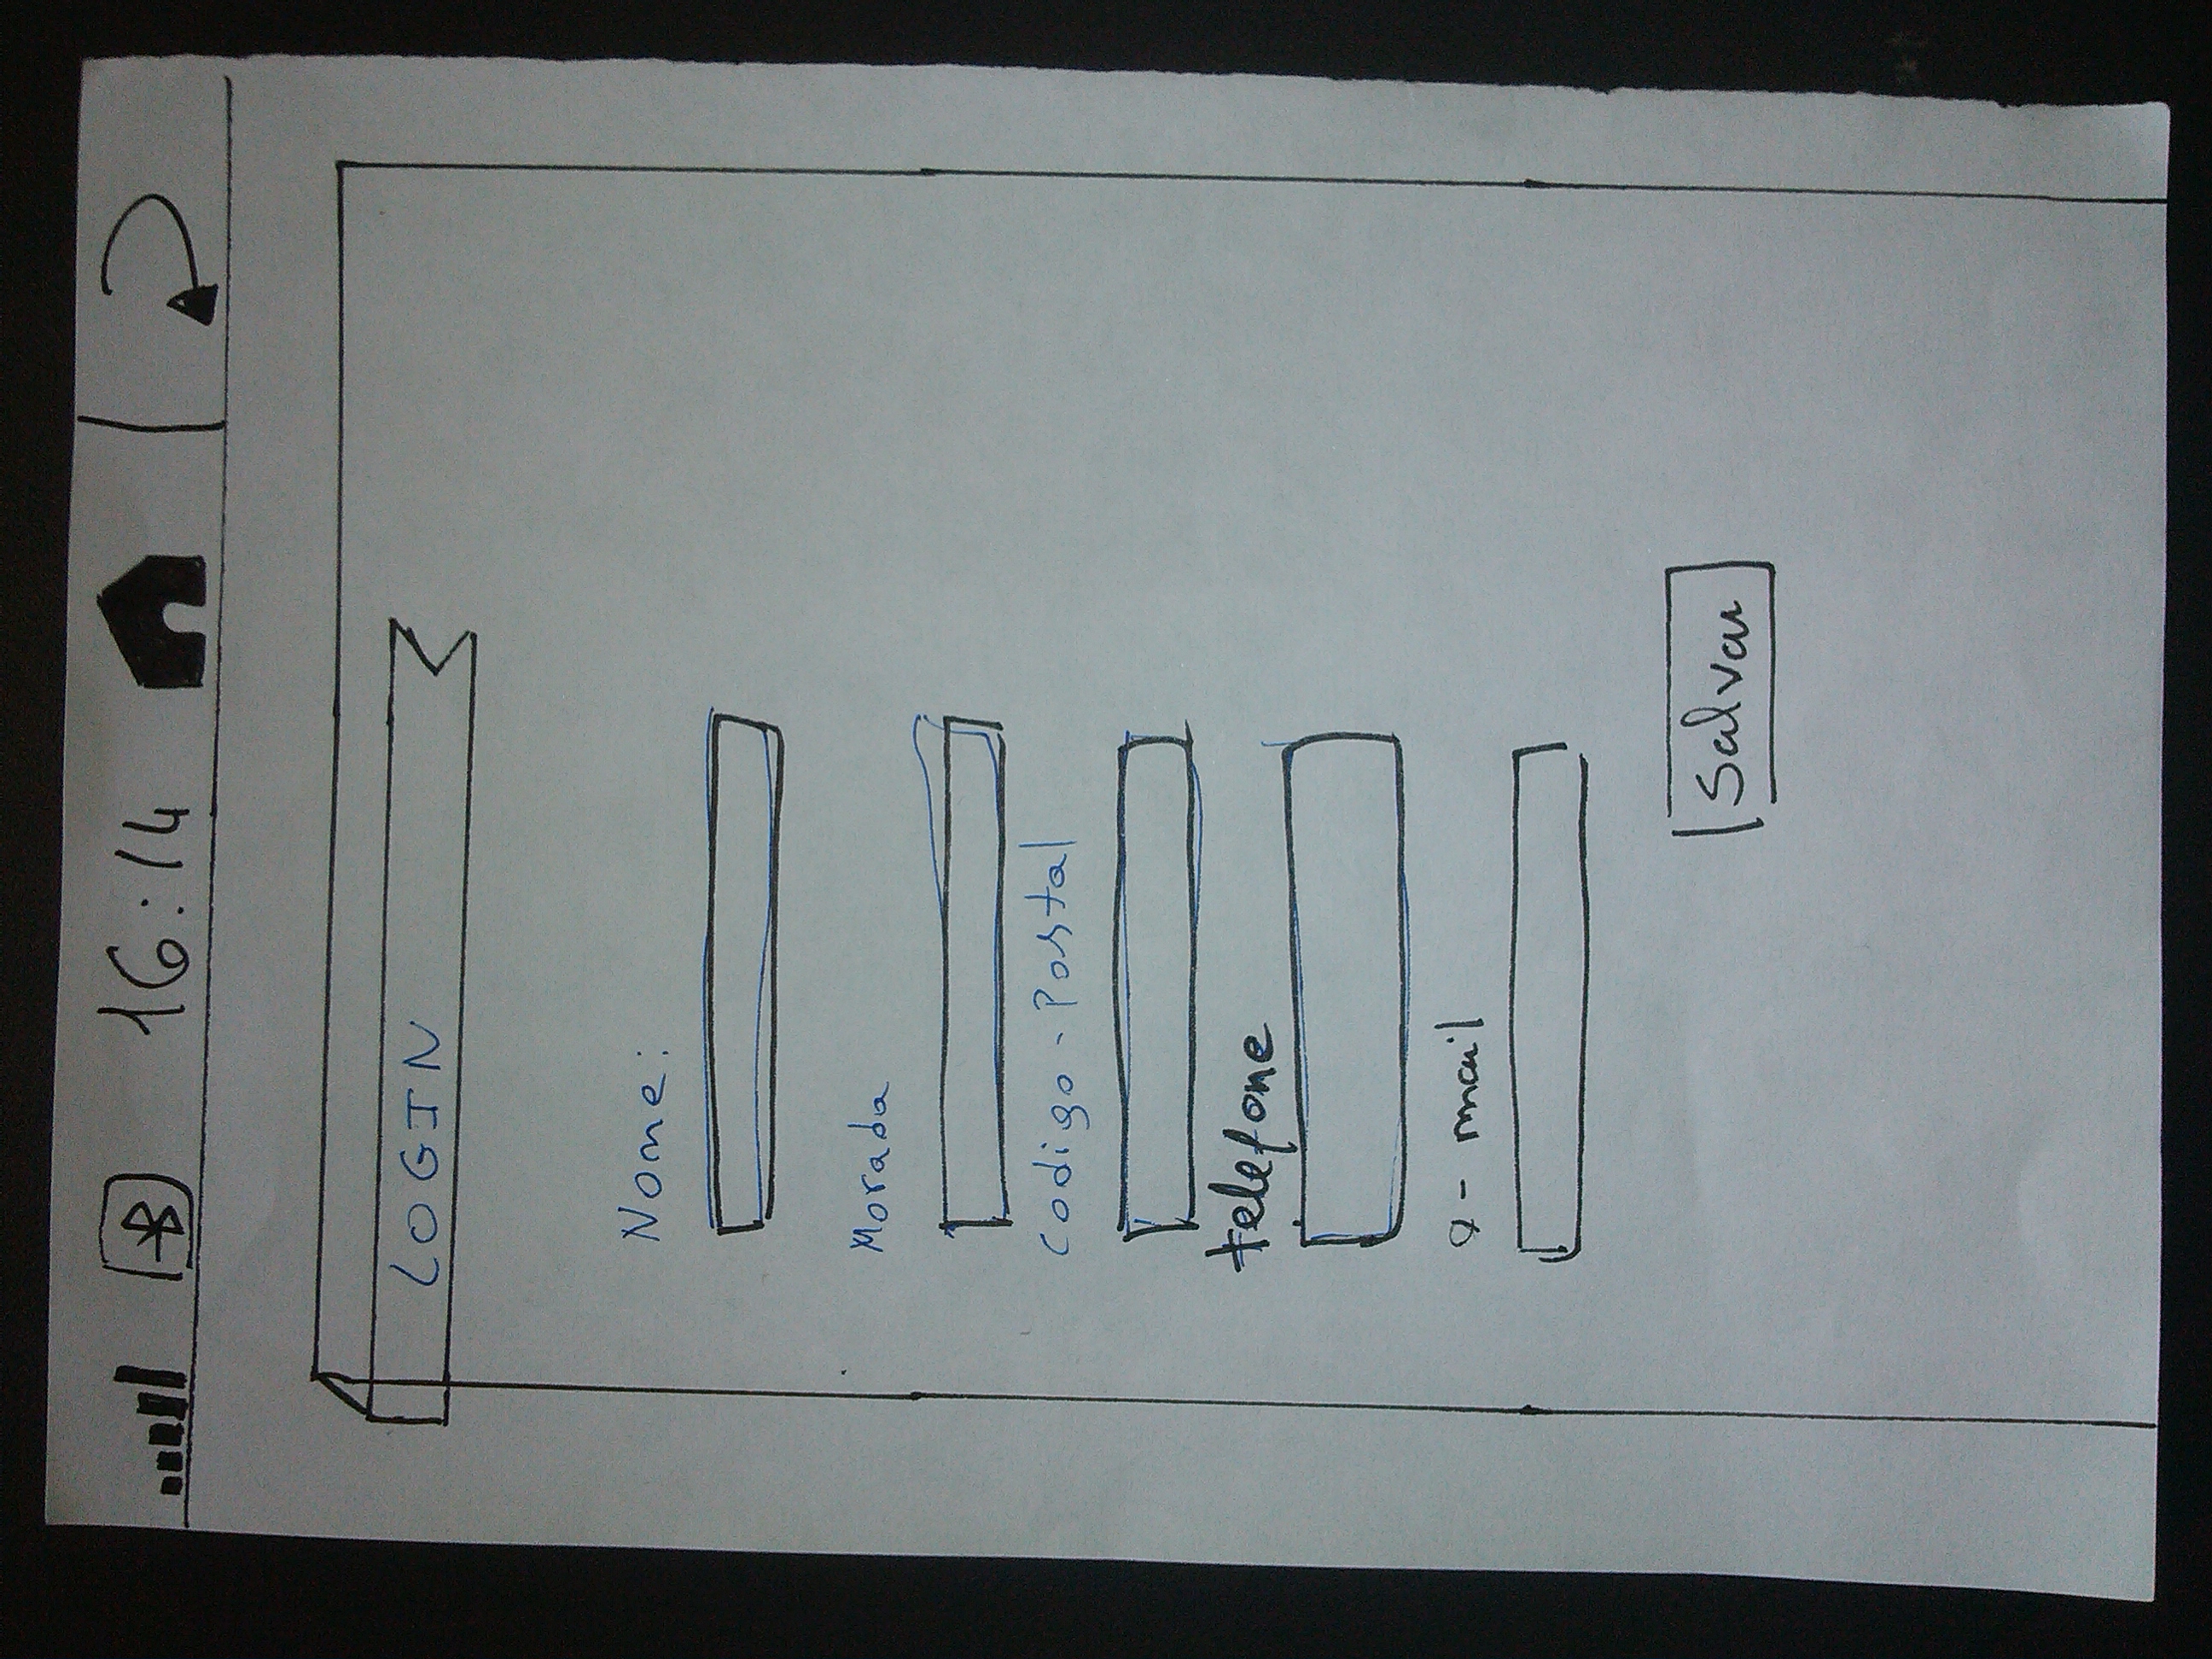 16:14
LOGIN
Nome:
Morada
Codigo-Postal
telefone
e-mail
Salvar